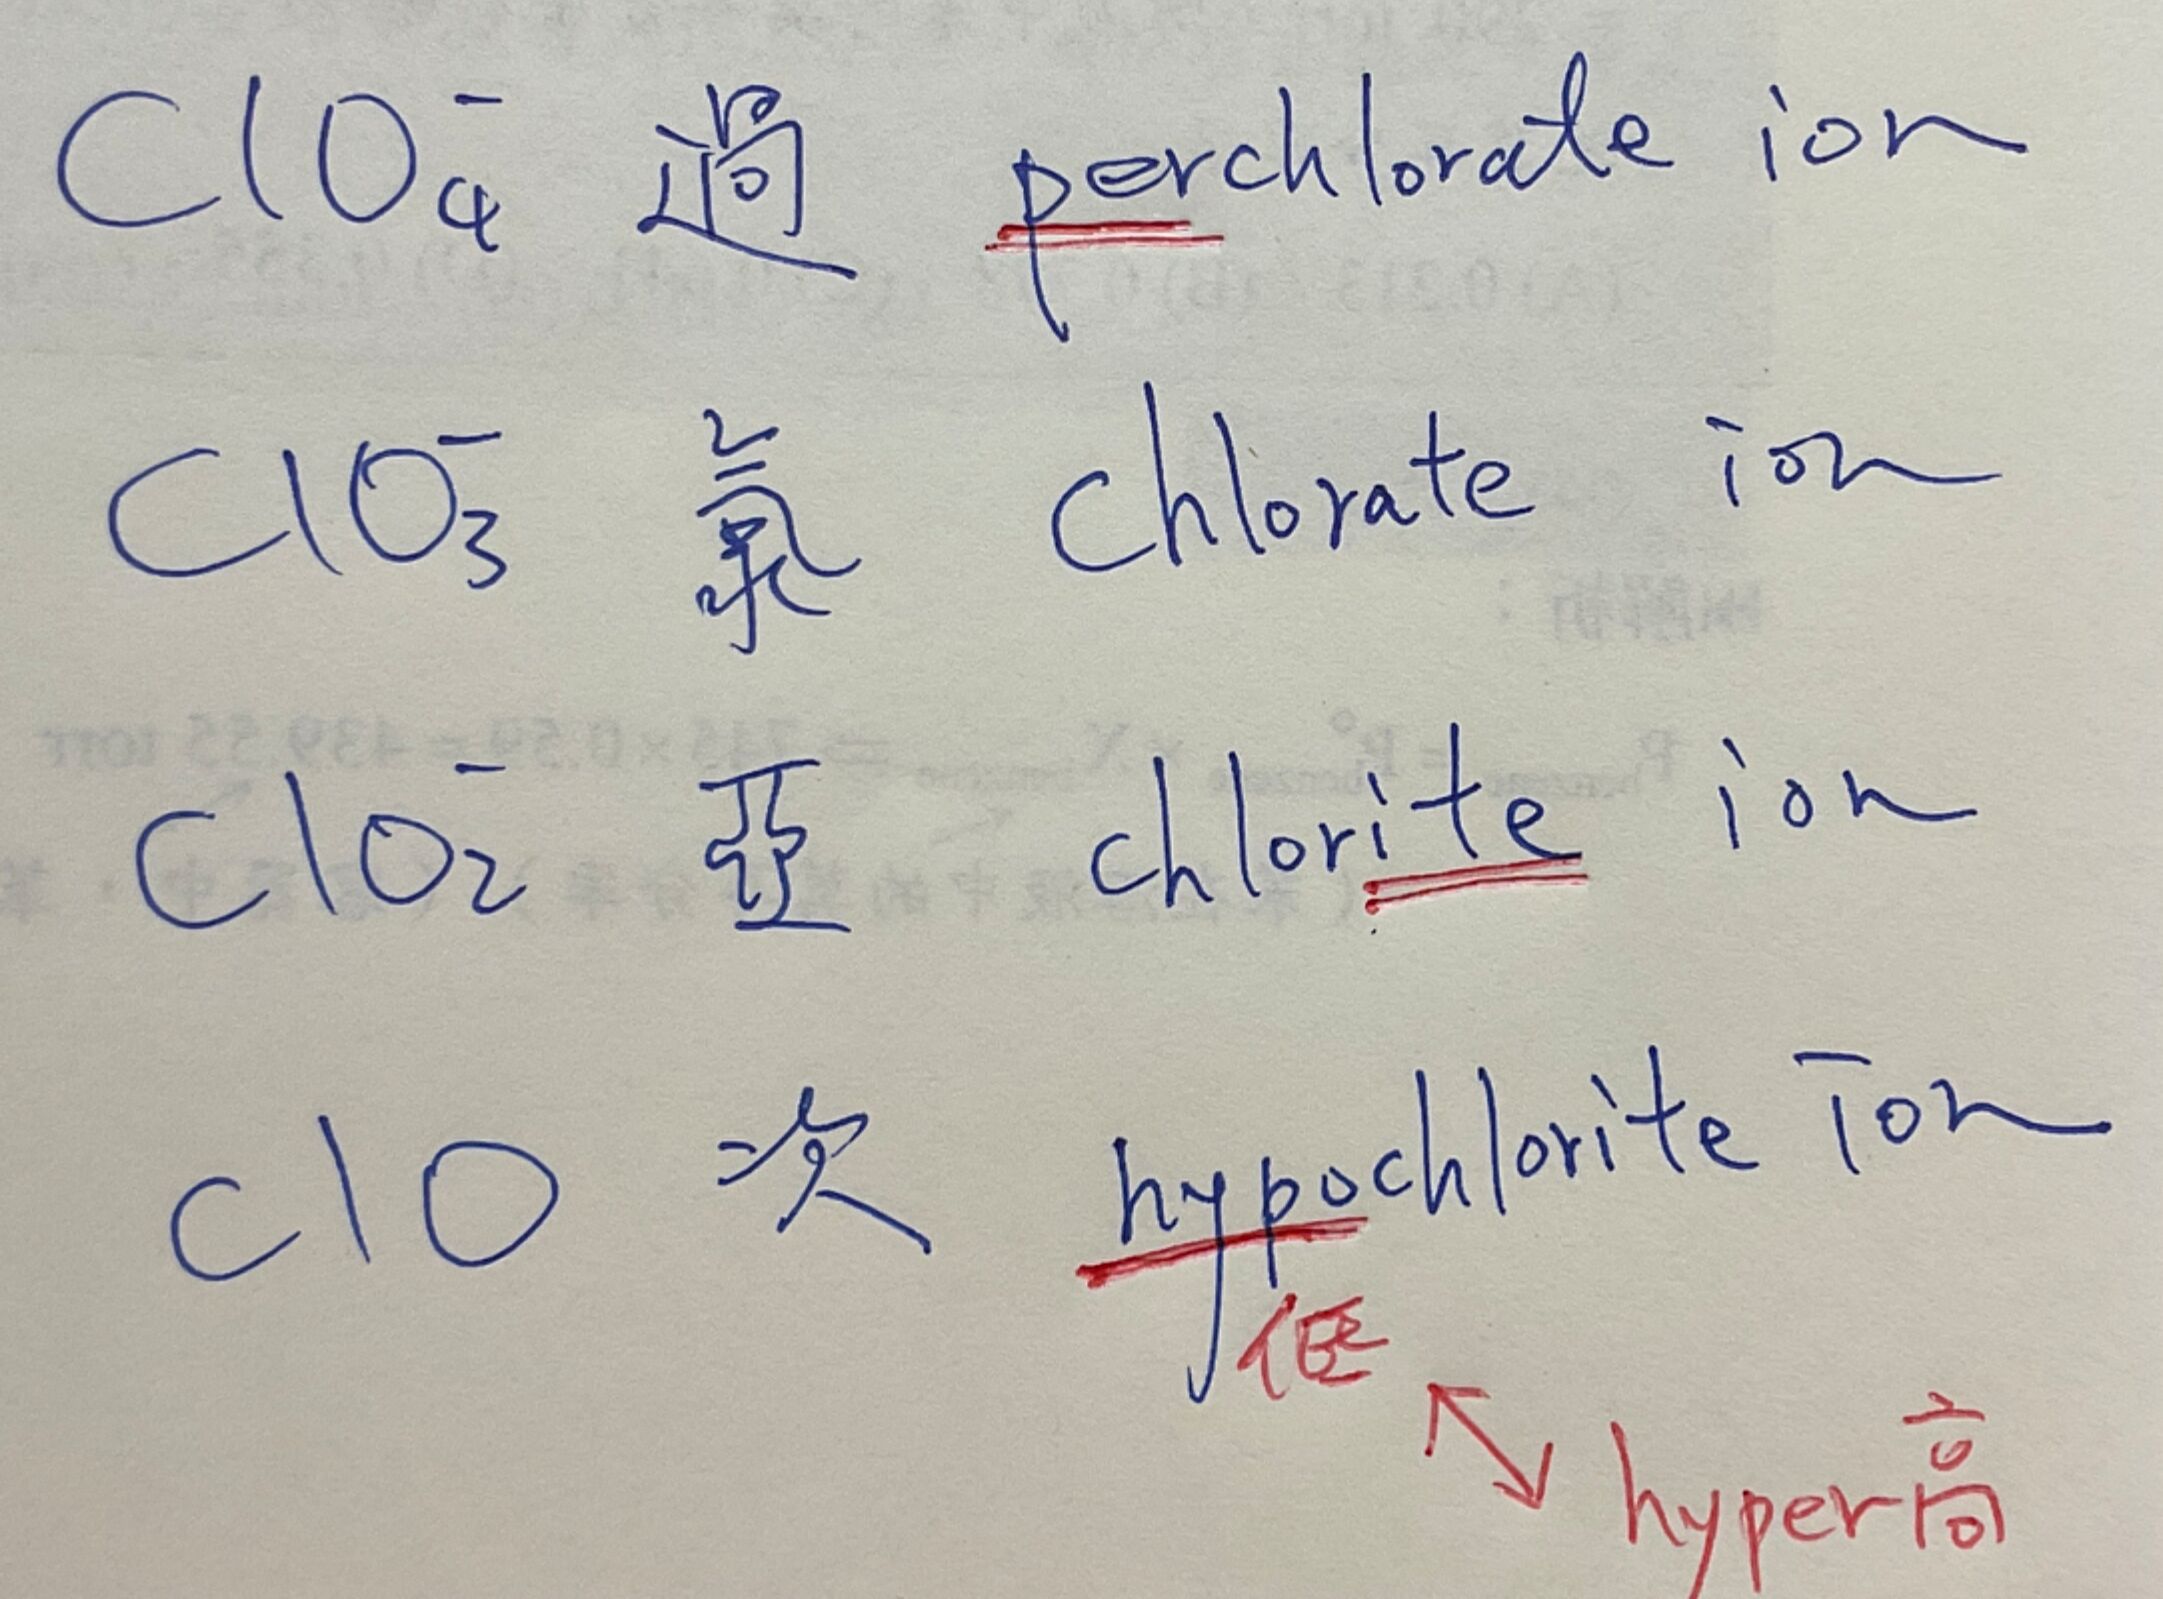 ClO₄⁻ 過 perchlorate ion
ClO₃⁻ 氯 chlorate ion
ClO₂⁻ 亞 chlorite ion
ClO 次 hypochlorite ion
低
hyper高